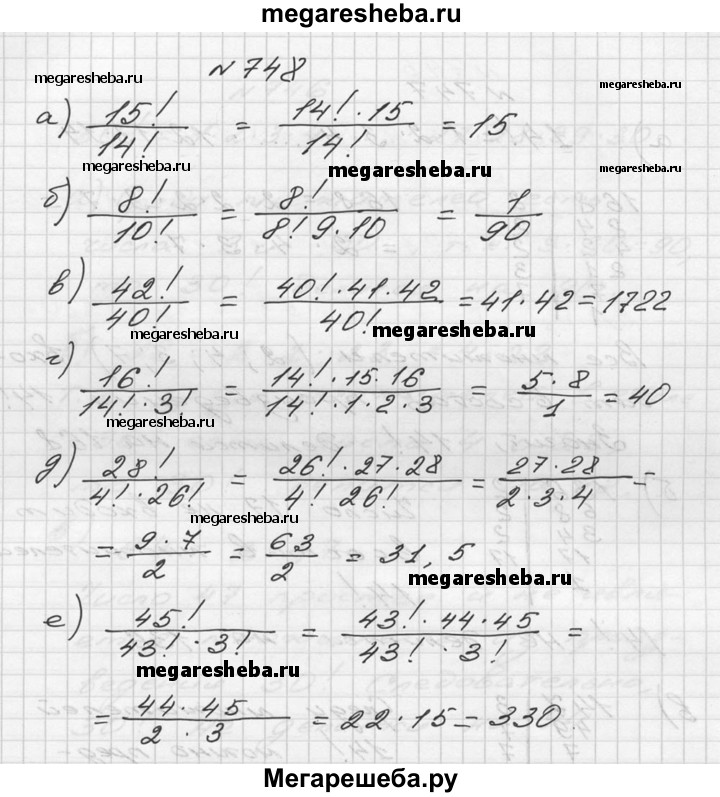 megaresheba.ru
№748
megaresheba.ru megaresheba.ru
а) 15!/14! = 14!·15/14! = 15
megaresheba.ru megaresheba.ru megaresheba.ru
б) 8!/10! = 8!/8! 9·10 = 1/90
в) 42!/40! = 40!·41·42/40! = 41·42 = 1722
megaresheba.ru megaresheba.ru
г) 16!/14!·3! = 14!·15·16/14!·1·2·3 = 5·8/1 = 40
megaresheba.ru
д) 28!/4!·26! = 26!·27·28/4! 26! = 27·28/2·3·4 =
megaresheba.ru
= 9·7/2 = 63/2 = 31,5
megaresheba.ru
е) 45!/43!·3! = 43!·44·45/43!·3! =
megaresheba.ru
= 44·45/2·3 = 22·15 = 330
Мегарешеба.ру